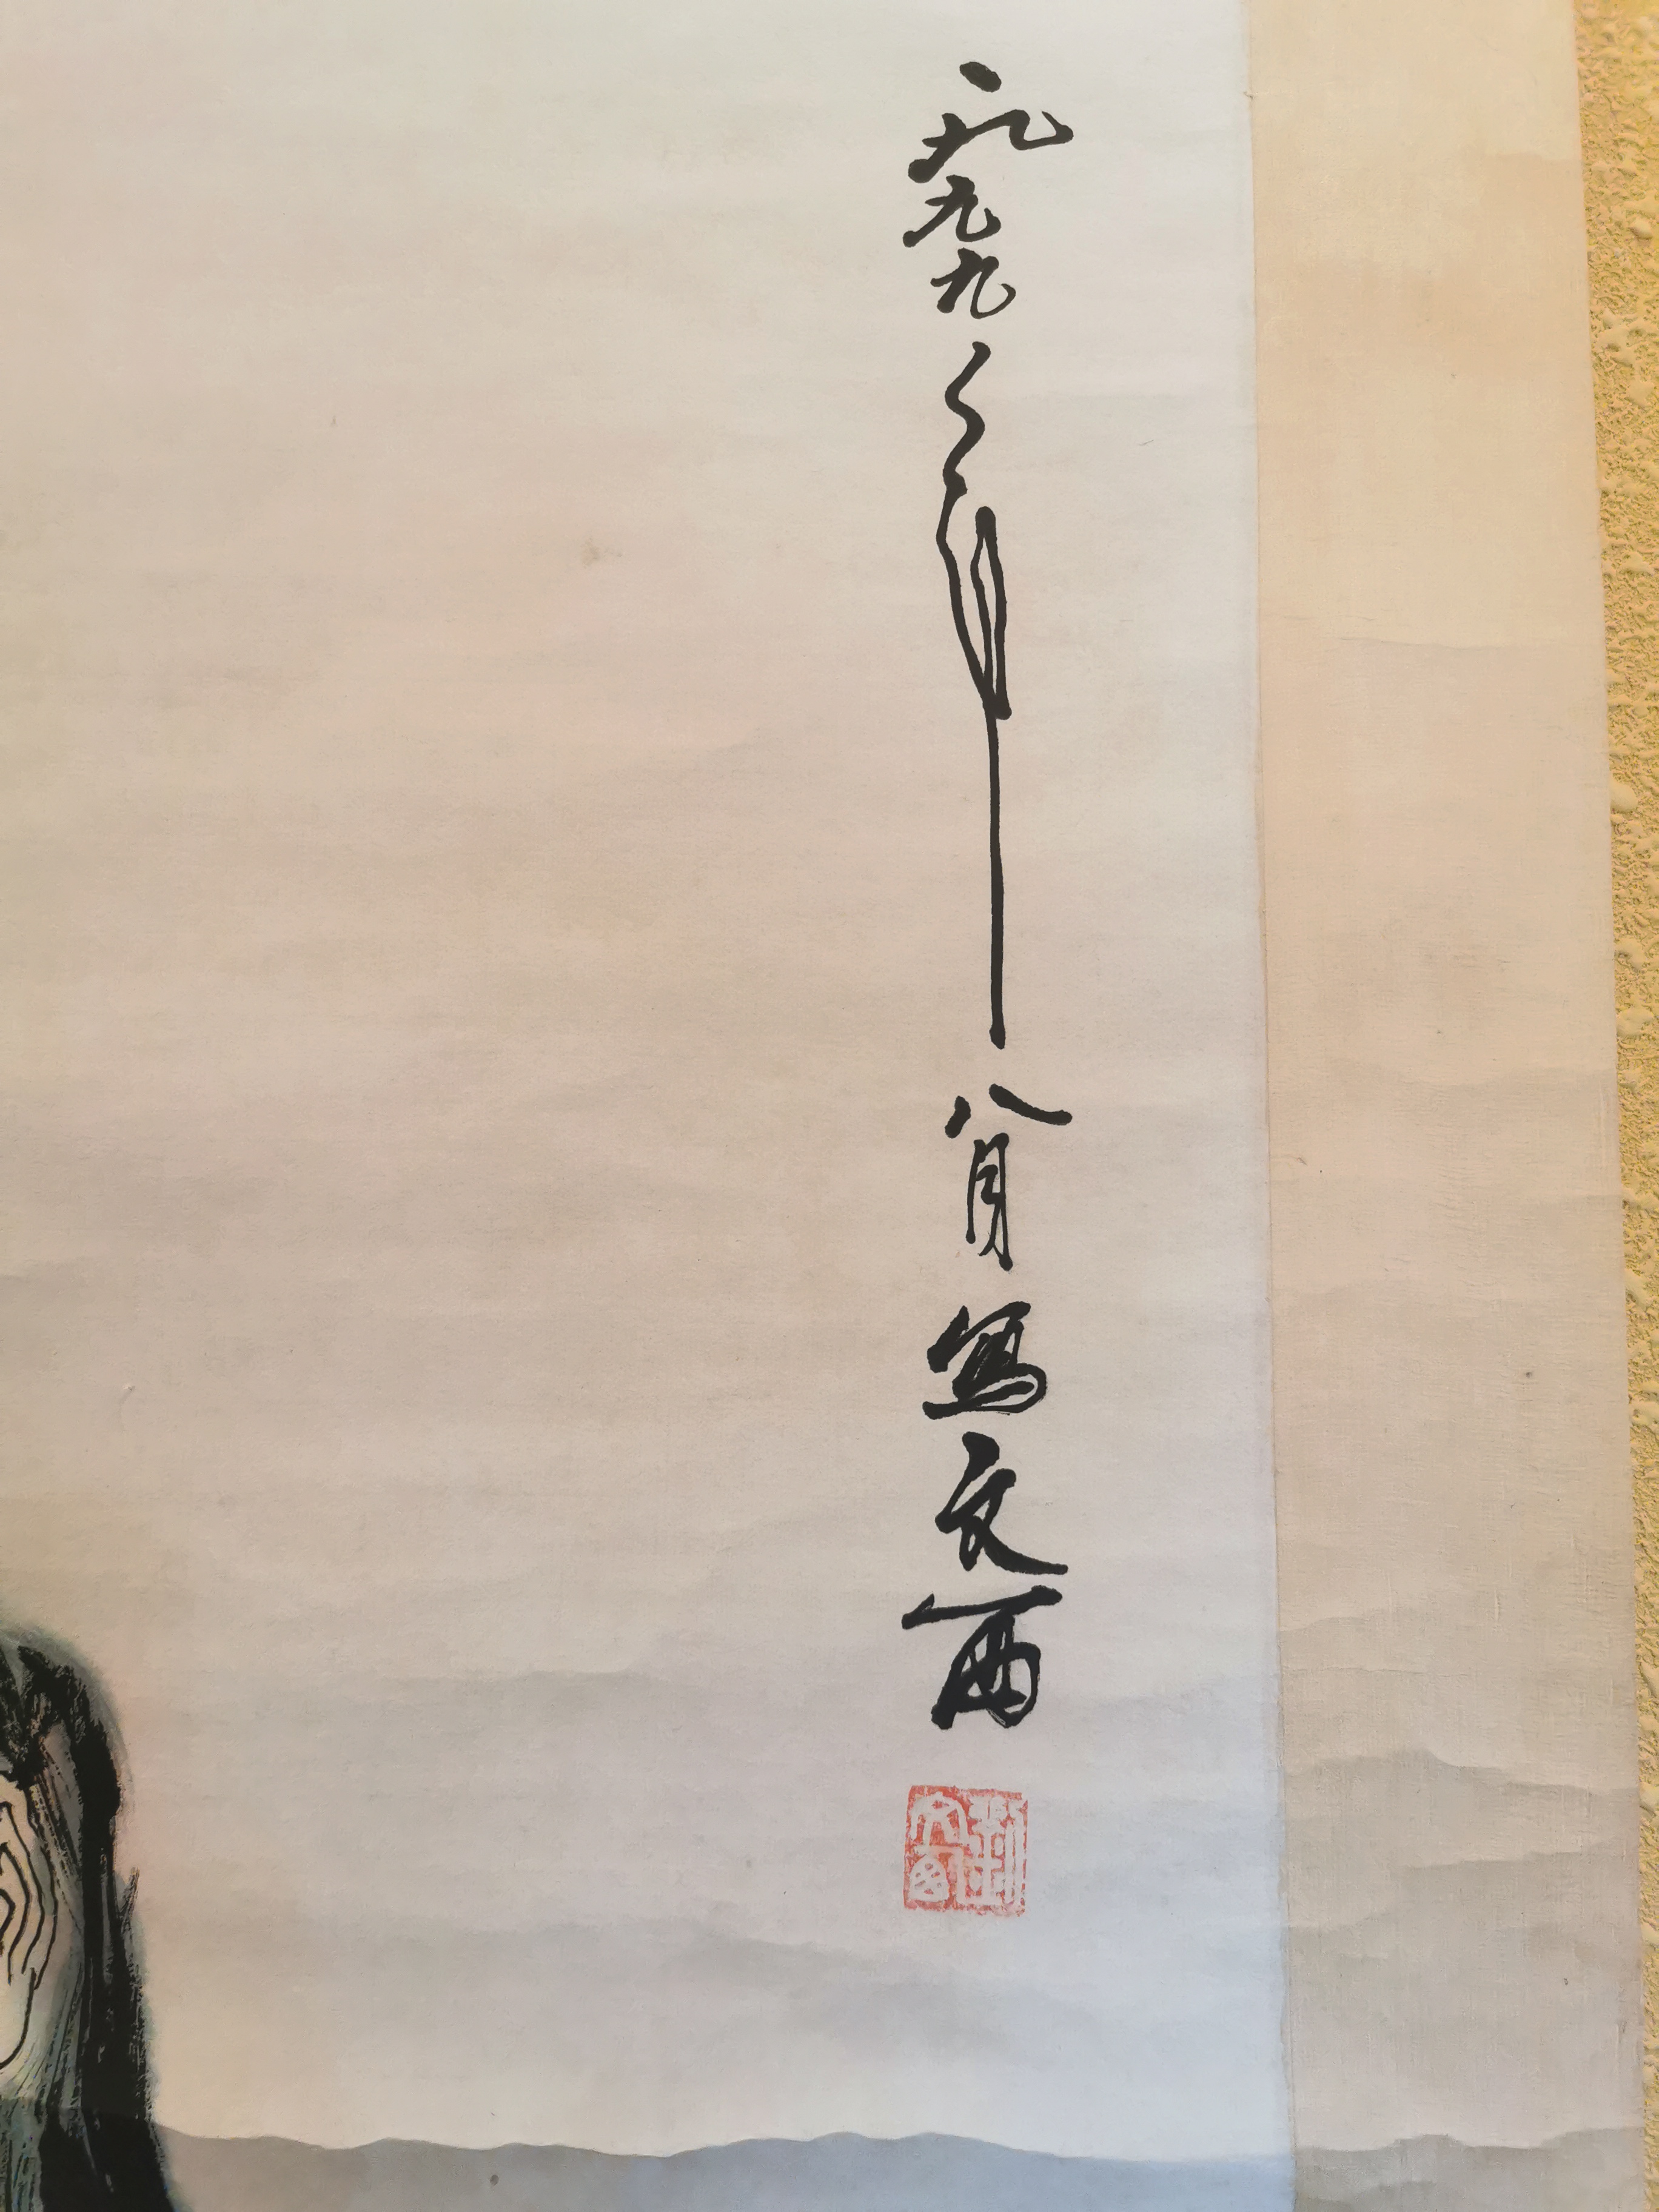 一九九九年八月寫文西
劉文西